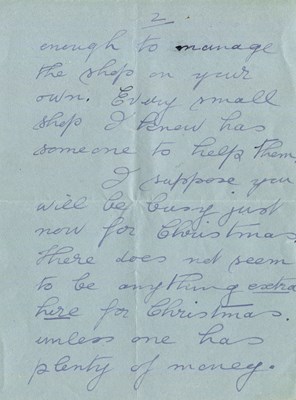 2.
enough to manage
the shop on your
own. Every small
shop I know has
someone to help them
I suppose you
will be busy just
now for Christmas
There does not seem
to be anything extra
here for Christmas.
unless one has
plenty of money.